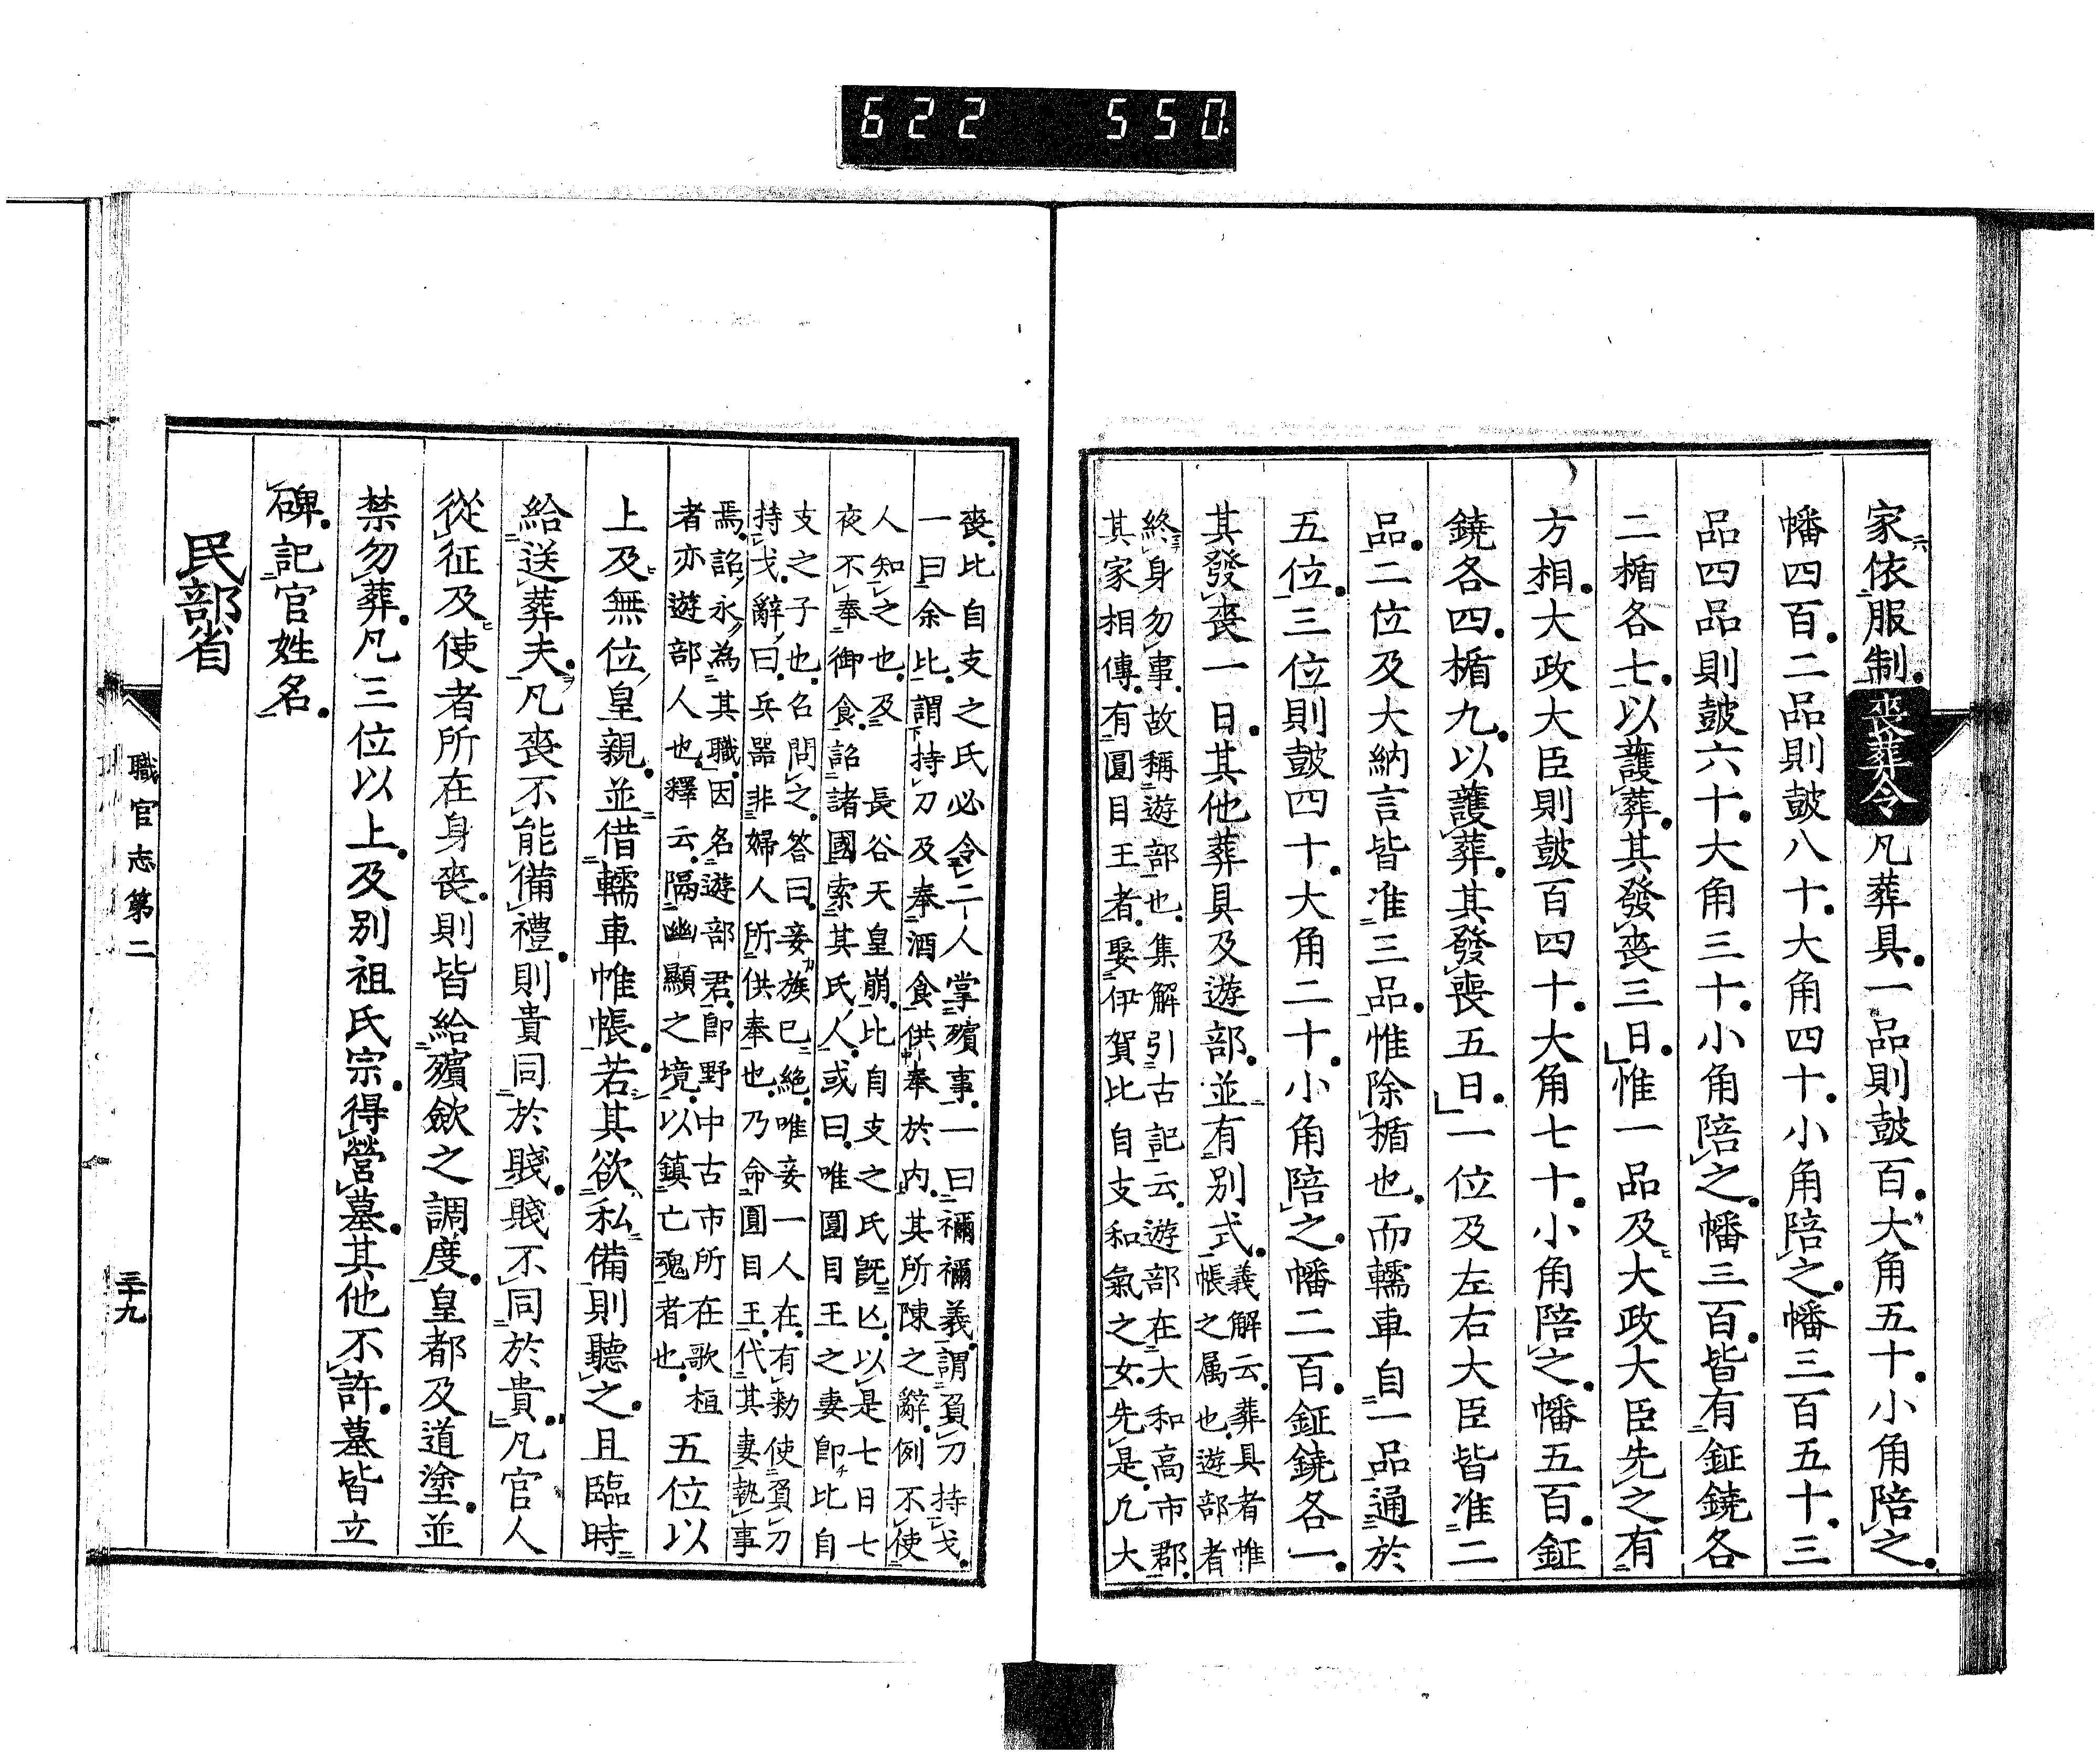 622 550
家依服制喪葬令凡葬具一品則鼓百大角五十小角陪之
幡四百二品則鼓八十大角四十小角陪之幡三百五十三
品四品則鼓六十大角三十小角陪之幡三百皆有鉦鐃各
二楯各七以護葬其發喪三日惟一品及大政大臣先之有
方相大政大臣則鼓百四十大角七十小角陪之幡五百鉦
鐃各四楯九以護葬其發喪五日一位及左右大臣皆准二
品二位及大納言皆准三品惟除楯也而轜車自一品通於
五位三位則鼓四十大角二十小角陪之幡二百鉦鐃各一
其發喪一日其他葬具及遊部並有別式
義解云葬具者帷
帳之属也遊部者
終身勿事故稱遊部也集解引古記云遊部在大和高市郡
其家相傳有圓目王者娶伊賀比自支和氣之女先是凡大
喪比自支之氏必令二人掌殯事一曰禰禰義謂負刀持戈
一曰余比謂持刀及奉酒食供奉於内其所陳之辭例不使
人知之也及長谷天皇崩比自支之氏既亾以是七日七
夜不奉御食詔諸國索其氏人或曰唯圓目王之妻卽比自
支之子也名問之答曰妾族已絕唯妾一人在有勅使負刀
持戈辭曰兵器非婦人所供奉也乃命圓目王代其妻執事
焉詔永為其職因名遊部君卽野中古市所在歌桓
者亦遊部人也釋云隔幽顯之境以鎮亡魂者也
五位以
上及無位皇親並借轜車帷帳若其欲私備則聽之且臨時
給送葬夫凡喪不能備禮則貴同於賤賤不同於貴凡官人
從征及使者所在身喪則皆給殯斂之調度皇都及道塗並
禁勿葬凡三位以上及別祖氏宗得營墓其他不許墓皆立
碑記官姓名
民部省
職官志第二
三十九